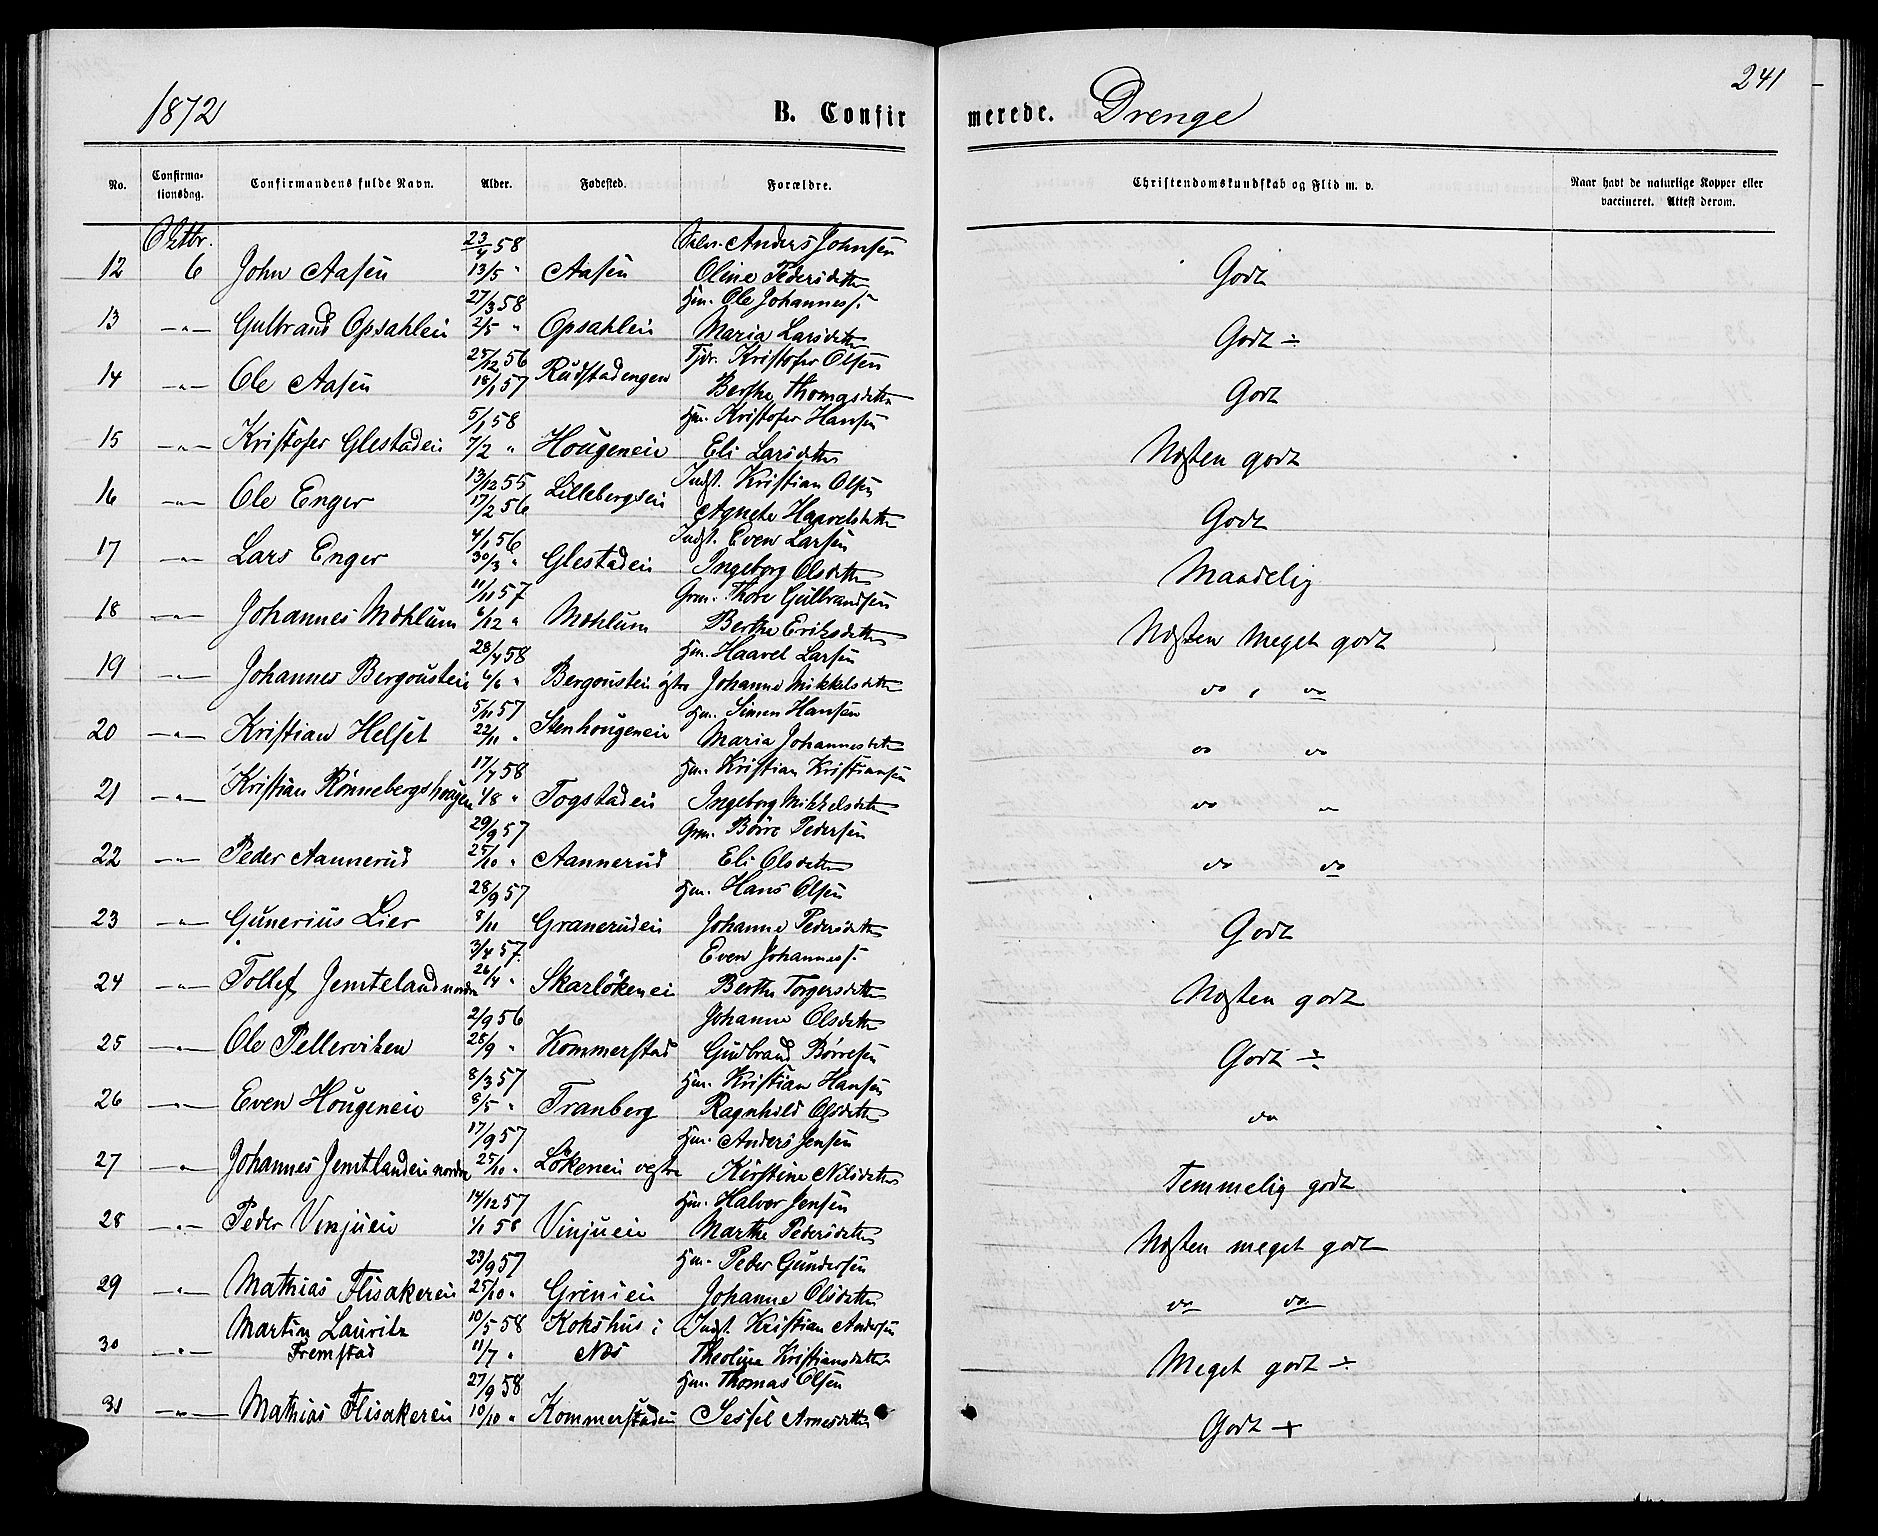 1872
B. Confirmerede. Drenge
241
No.
Confirmationsdag.
Confirmandens fulde Navn.
Alder.
Fødested.
Forældre.
Christendomskundskab og Flid m. v.
Naar havt de naturlige Kopper eller vaccineret. Attest derom.
Oktbr.
23/4 58 Anders Johnsen
12 6 John Aasen 13/5 " Aasen Oline Pedersdatter Godt
27/3 58 Hm. Ole Johanness.
13 -"- Gulbrand Opsahlen 2/5 " Opsahlen Maria Larsdatter Godt ÷
25/12 56 Tjdr. Kristofer Olsen
14 -"- Ole Aasen 18/1 57 Rudstadengen Berthe Thomasdatter Godt
5/1 58 Hm. Kristofer Hansen
15 -"- Kristofer Glestadei 7/2 " Hougeneie Eli Larsdatter Næsten godt
13/12 55 Indst. Kristian Olsen
16 -"- Ole Enger 17/2 56 Lillebergsei Agnete Haavelsdatter Godt
4/1 56 Indst. Even Larsen
17 -"- Lars Enger 30/3 " Glestadeie Ingeborg Olsdatter Maadelig
11/11 57 Grm. Thore Gulbrandsen
18 -"- Johannes Mæhlum 6/12 " Mæhlum Berthe Eriksdatter Næsten meget godt
28/4 58 Hm. Haavel Larsen
19 -"- Johannes Bergousteie 6/6 " Bergoustei østre Johanne Mikkelsdatter do , do
5/11 57 Hm. Simen Hansen
20 -"- Kristian Helset 22/11 " Stenhougeneie Maria Johannesdatter do do
17/7 58 Hm. Kristian Kristiansen
21 -"- Kristian Rønnebergshougen 1/8 " Togstadeie Ingeborg Mikkelsdatter do "
29/9 57 Grm. Børre Pedersen
22 -"- Peder Aannerud 25/10 " Aannerud Eli Olsdatter do do
28/9 57 Hm. Hans Olsen
23 -"- Gunerius Lier 8/11 Granerudeie Johanne Pedersdatter Godt
3/4 57 Even Johanness.
24 -"- Tollef Jemteland nordre 26/4 " Skarløkenei Berthe Torgersdatter Næsten godt
2/9 56 Johanne Olsdatter
25 -"- Ole Pellerviken 28/9 " Kommerstad Gudbrand Børresen Godt ÷
8/3 57 Hm. Kristian Hansen
26 -"- Even Hougeneie 8/5 " Tranberg Ragnhild Olsdatter do
17/9 57 Hm. Anders Jensen
27 -"- Johannes Jemtlandeie nordre 25/10 " Løkeneie vestre Kirstine Nilsdatter Temmelig godt
14/12 57 Hm. Halvor Jensen
28 -"- Peder Vinjueie 1/1 58 Vinjueie Marthe Pedersdatter Næsten meget godt
23/9 57 Hm. Peder Gundersen
29 -"- Mathias Flisakereie 25/10 " Grenieie Johanne Olsdatter do do
Martin Lauritz 10/5 58 Kokshus i Indst. Kristian Andersen
30 -"- Fremstad 11/7 " Næs Theoline Kristiansdatter Meget godt ÷
27/9 58 Hm. Thomas Olsen
31 -"- Mathias Flisakereie 10/10 " Kommerstadeie Sessel Arnesdatter Godt +